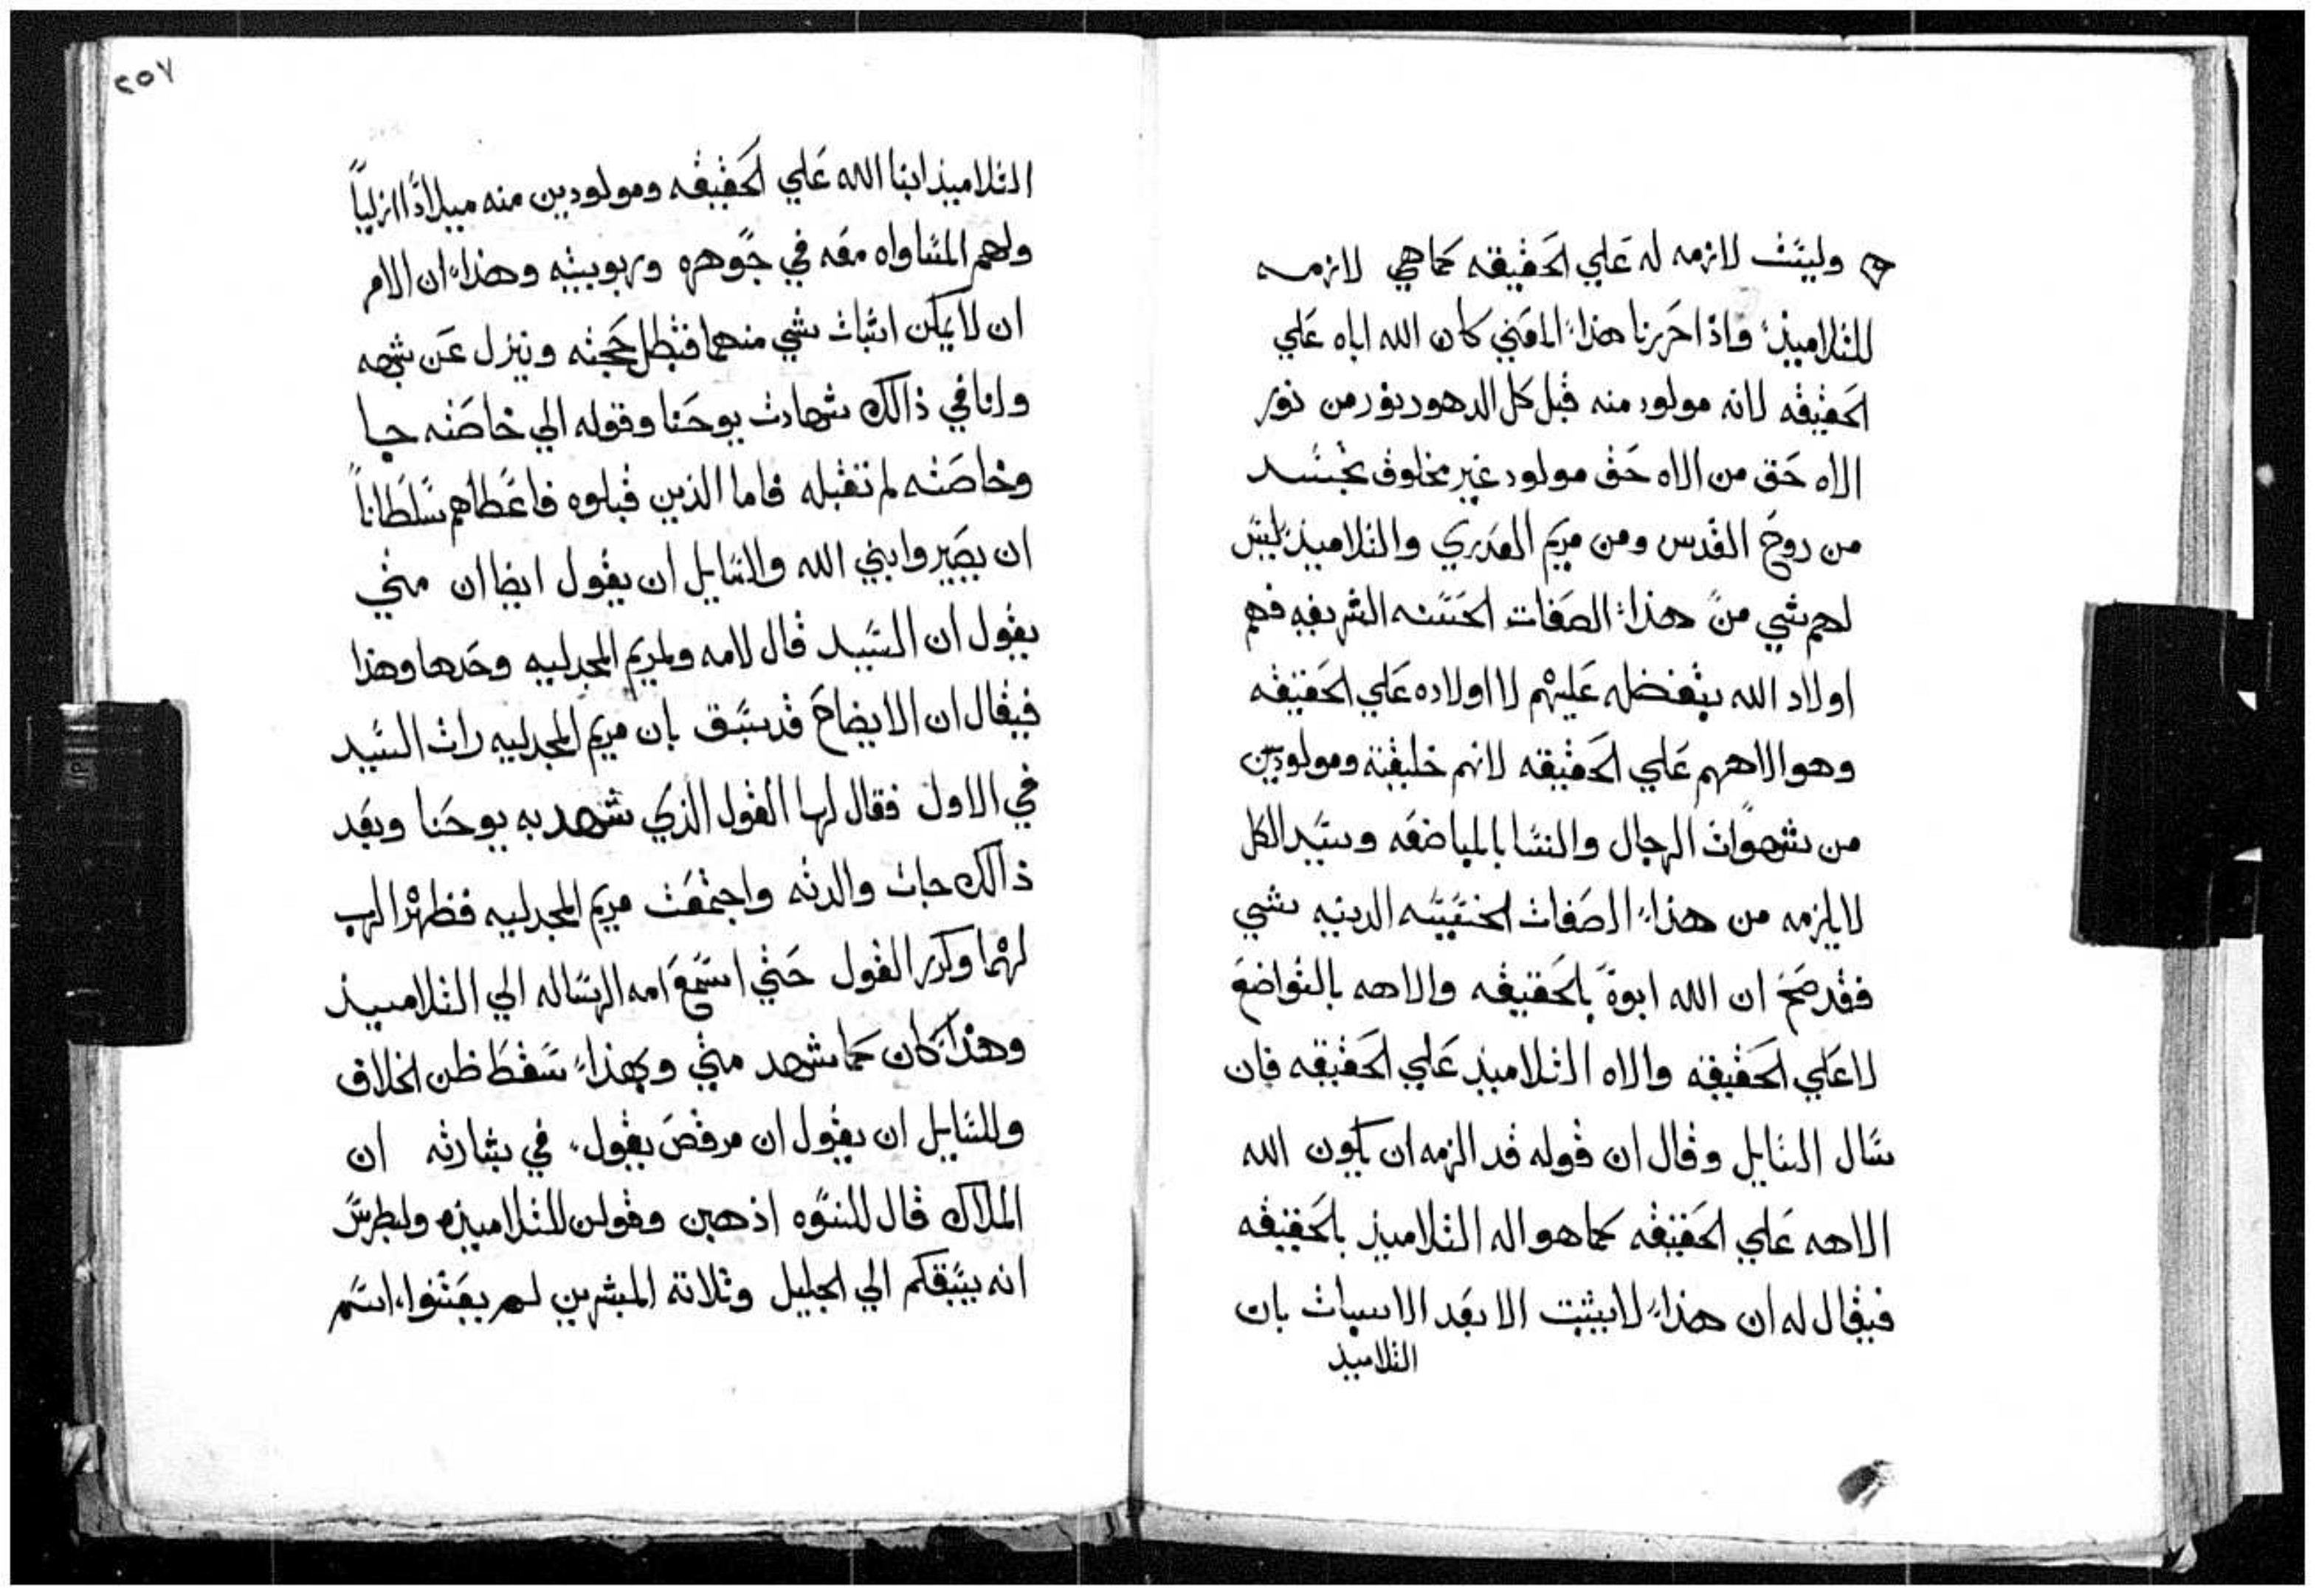 وليست لازمه له علي الحقيقه كما هي لازمه
للتلاميذ واذا حررنا هذا المعني كان الله اباه علي
الحقيقه لانه مولود منه قبل كل الدهور نور من نور
الاه حق من الاه حق مولود غير مخلوق تجسد
من روح القدس ومن مريم العدري والتلاميذ ليس
لهم شي من هذا الصفات الحسنه الشريفه فهم
اولاد الله بتفضله عليهم لا اولاده علي الحقيقه
وهو الاههم علي الحقيقه لانهم خليقته ومولودين
من شهوات الرجال والنسا بالمباضعه وسيد الكل
لايلزمه من هذا الصفات الخسيسه الدنيه شي
فقد صح ان الله ابوه بالحقيقه والاهه بالتواضع
لا علي الحقيقه والاه التلاميذ علي الحقيقه فان
سال السايل وقال ان قوله قد الزمه ان يكون الله
الاهه علي الحقيقه كما هو اله التلاميذ بالحقيقه
فيقال له ان هذا لايثبت الا بعد الاسبات بان
التلاميذ
٢٥٧
التلاميذ ابنا الله علي الحقيقه ومولودين منه ميلاداً ازلياً
ولهم المساواه معه في جوهره وربوبيته وهذا ان الامر
ان لا يمكن اتبات شي منهما فتبطل حجته وينزل عن شبهه
ولنا في ذالك شهادت يوحنا وقوله الي خاصته جا
وخاصته لم تقبله فاما الذين قبلوه فاعطاهم سلطاناً
ان يصيروا بني الله وللسايل ان يقول ايضا ان متي
يقول ان السيد قال لامه ولمريم المجدليه وحدها وهذا
فيقال ان الايضاح قد سبق بان مريم المجدليه رات السيد
في الاول فقال لها القول الذي شهد به يوحنا وبعد
ذالك جات والدته واجتمعت مريم المجدليه فظهر الرب
لهما وكرر القول حتي اسمع امه الرساله الي التلاميذ
وهذا كان كما شهد متي وبهذا سقط ظن الخلاف
وللسايل ان يقول ان مرقص يقول في بشارته ان
الملاك قال للنسوه اذهبن وقولن للتلاميذه ولبطرس
انه يسبقكم الي الجليل وتلاتة المبشرين لم يعتنوا اسم